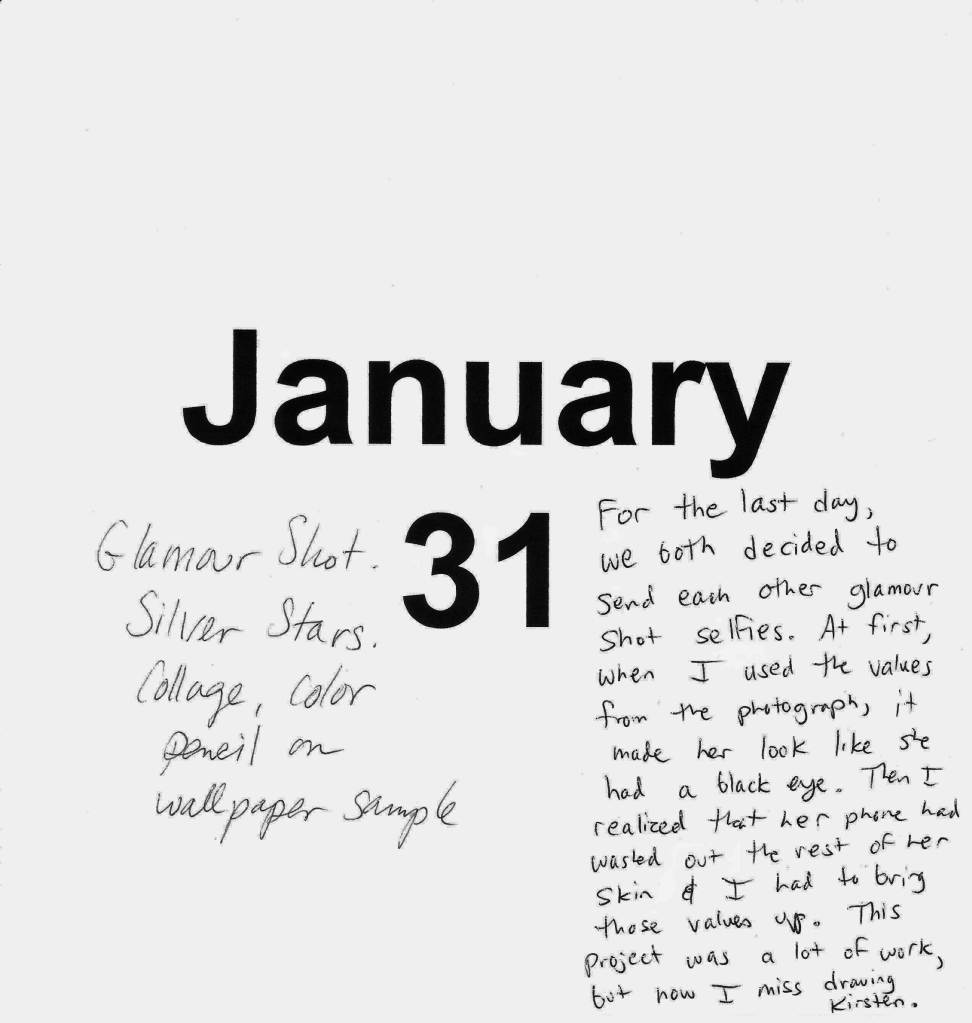 January
31
Glamour Shot.
Silver Stars.
Collage, color
pencil on
wallpaper sample
For the last day,
we both decided to
send each other glamour
shot selfies. At first,
when I used the values
from the photograph, it
made her look like she
had a black eye. Then I
realized that her phone had
washed out the rest of her
skin & I had to bring
those values up. This
project was a lot of work,
but now I miss drawing
Kirsten.